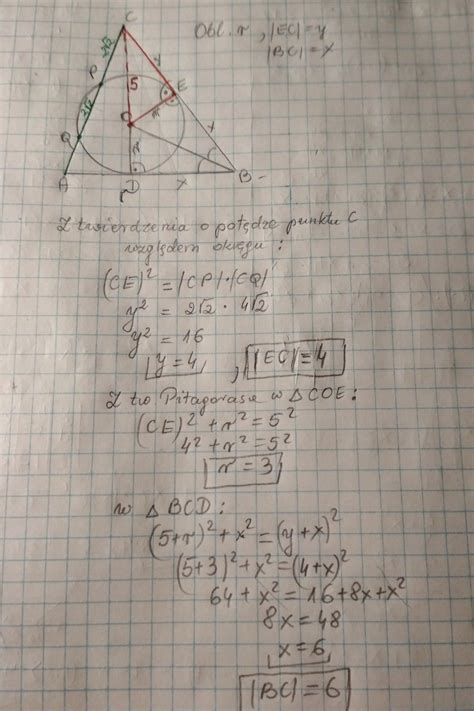 Obl. r, |EC|=y
|BC|=x
C
2√2
y
P
5
E
2√2
r
x
O
Q
r
A
D
x
B
r
Z twierdzenia o potędze punktu C
względem okręgu:
(CE)² = |CP|·|CQ|
y² = 2√2 · 4√2
y² = 16
y=4, |EC|=4
Z tw Pitagorasa w △COE:
(CE)² + r² = 5²
4² + r² = 5²
r = 3
w △ BCD:
(5+r)² + x² = (y+x)²
(5+3)² + x² = (4+x)²
64 + x² = 16+8x+x²
8x = 48
x = 6
|BC| = 6